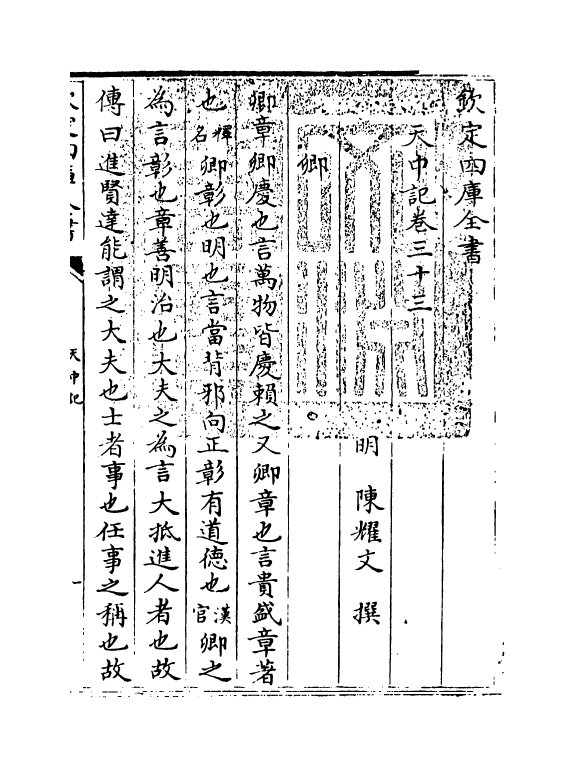 欽定四庫全書
天中記卷三十三
明 陳耀文 撰
卿
卿章卿慶也言萬物皆慶賴之又卿章也言貴盛章著
也釋名卿彰也明也言當背邪向正彰有道德也漢官卿之
為言彰也章善明治也大夫之為言大扺進人者也故
傳曰進賢達能謂之大夫也士者事也任事之稱也故
天中記
一